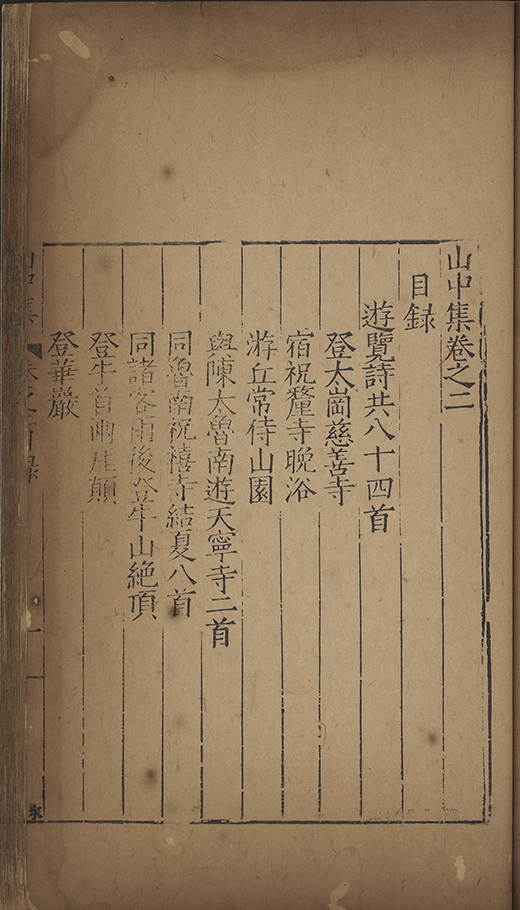 山中集卷之二
目録
遊覽詩共八十四首
登太崗慈善寺
宿祝釐寺晚浴
游丘常侍山園
與陳大魯南遊天寧寺二首
同魯南祝禧寺結夏八首
同諸客雨後登牛山絶頂
登牛首崖顛
登華嚴
山中集 卷之二目録
一